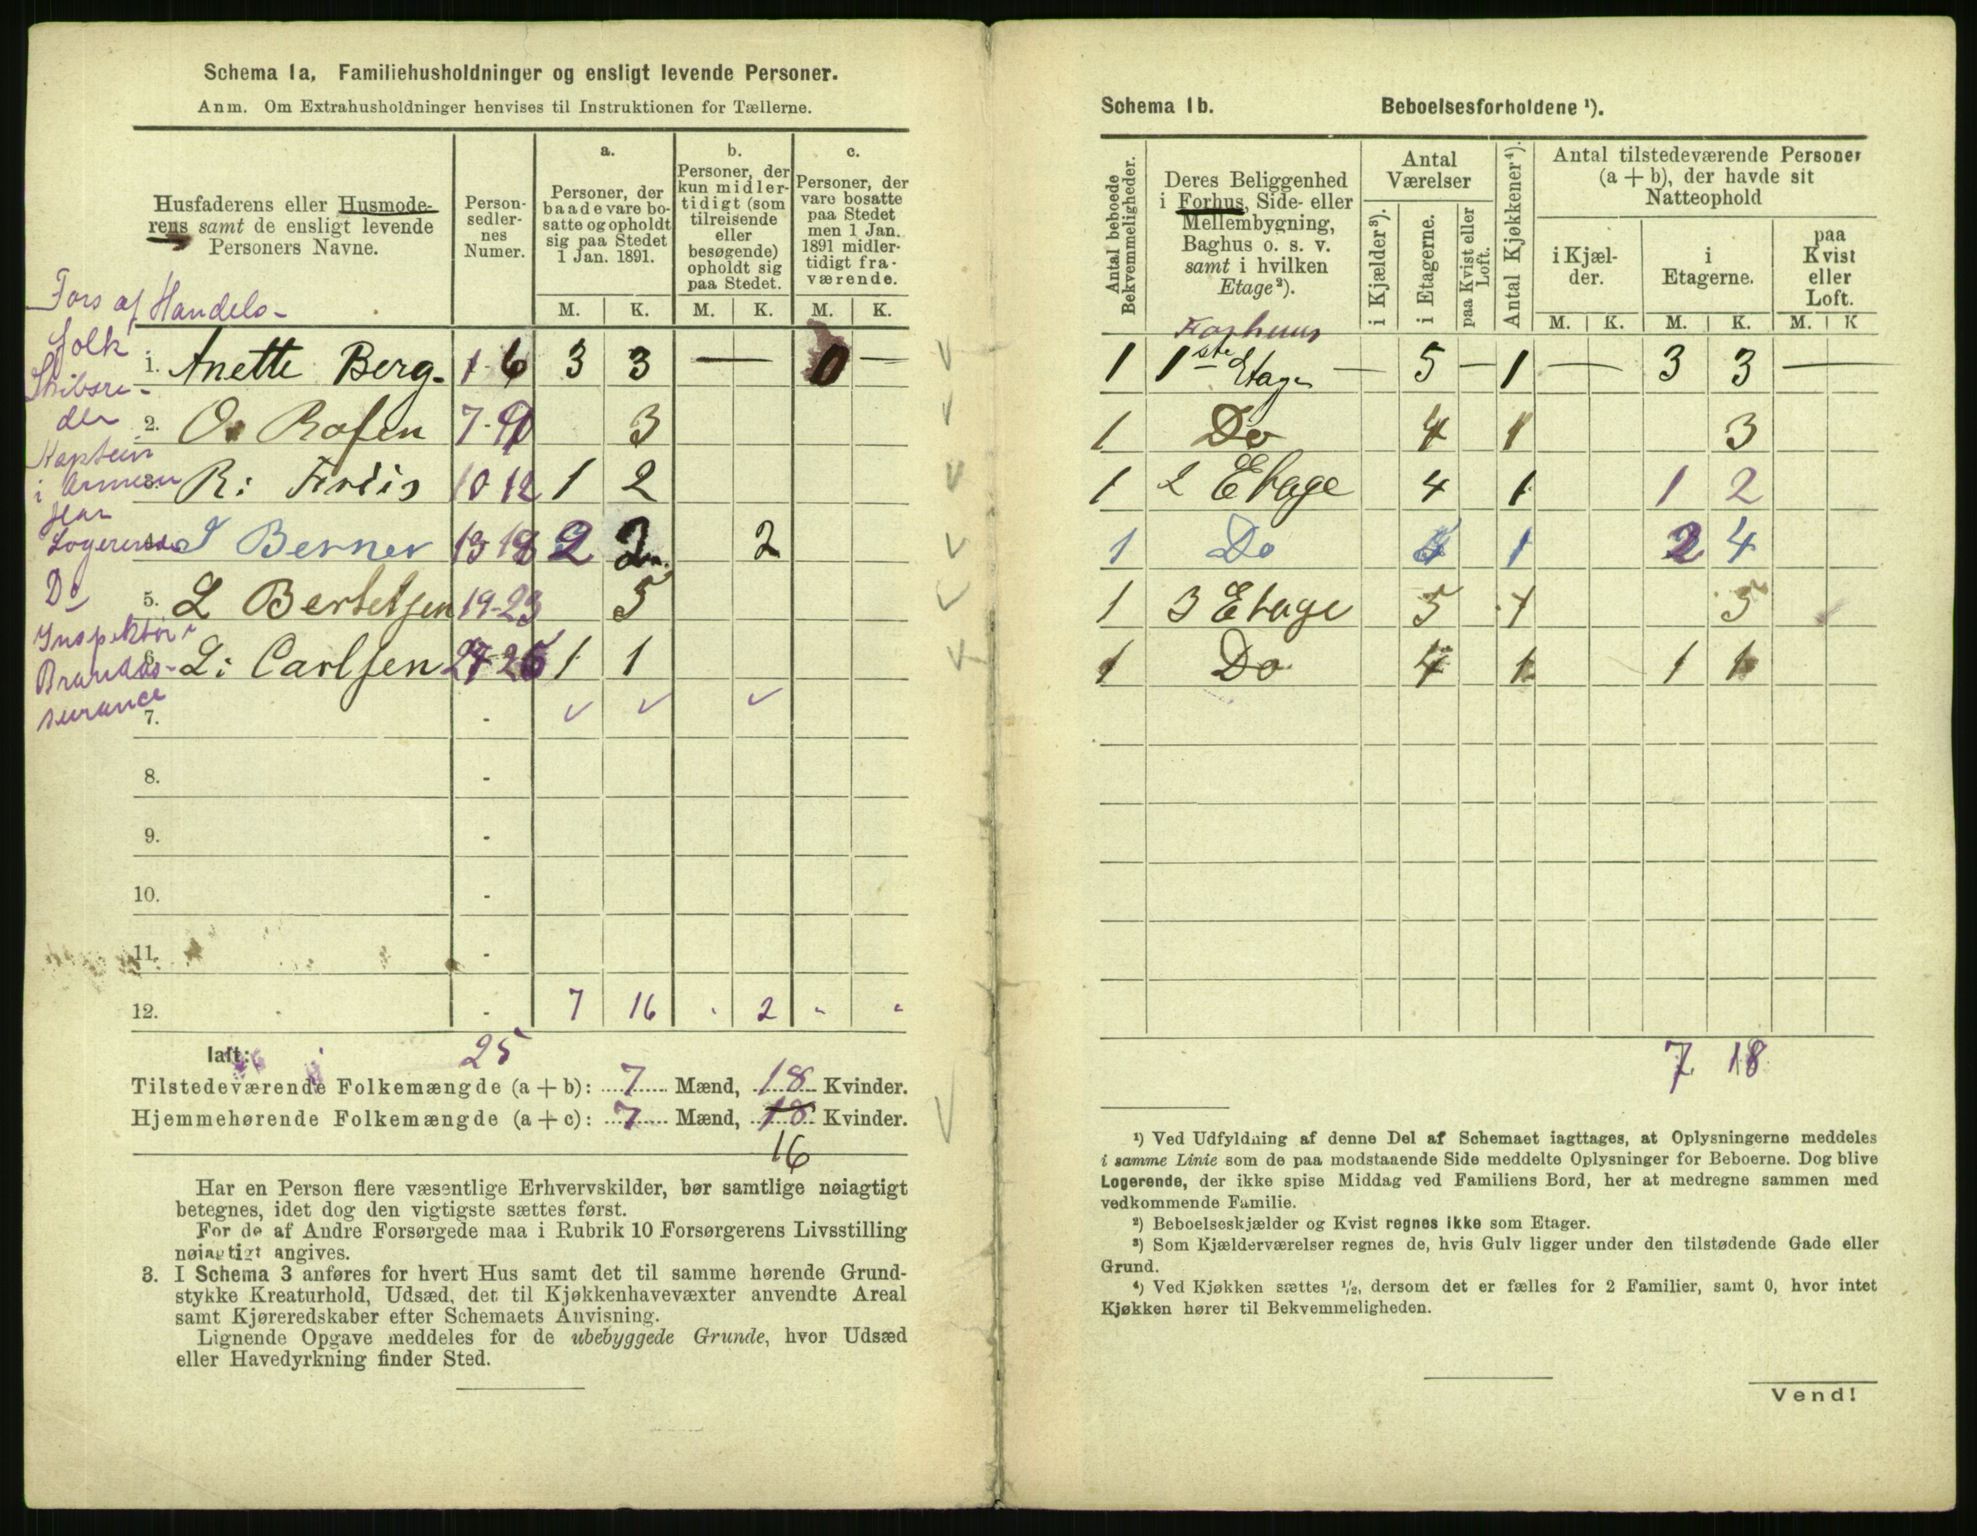 Schema 1a, Familiehusholdninger og ensligt levende Personer.
Anm. Om Extrahusholdninger henvises til Instruktionen for Tællerne.
Husfaderens eller Husmoderens samt de ensligt levende Personers Navne.
Personsedlernes Numer.
a. Personer, der baade vare bosatte og opholdt sig paa Stedet 1 Jan. 1891.
b. Personer, der kun midlertidigt (som tilreisende eller besøgende) opholdt sig paa Stedet.
c. Personer, der vare bosatte paa Stedet men 1 Jan. 1891 midlertidigt fraværende.
M. K. M. K. M. K.
Fors af Handels-
folk
1. Anette Berg. 1-6 3 3 — 0 —
Skibsre-
der
2. O. Rosen 7-9 3
Kaptein
i Armeen
3. R: Friis 10 12 1 2
Logerende
4. J Berner 13 18 2 2 2
Do
5. L Bertelsen 19-23 5
Inspektør i
Brandas-
surance
6. L: Carlsen 24-25 1 1
7. -
8. -
9. -
10. -
11. -
12. - 7 16 2
Ialt: 25
Tilstedeværende Folkemængde (a + b): 7 Mænd, 18 Kvinder.
Hjemmehørende Folkemængde (a + c): 7 Mænd, 18 Kvinder.
16
Har en Person flere væsentlige Erhvervskilder, bør samtlige nøiagtigt
betegnes, idet dog den vigtigste sættes først.
For de af Andre Forsørgede maa i Rubrik 10 Forsørgerens Livsstilling
nøiagtigt angives.
3. I Schema 3 anføres for hvert Hus samt det til samme hørende Grund-
stykke Kreaturhold, Udsæd, det til Kjøkkenhavevæxter anvendte Areal
samt Kjøreredskaber efter Schemaets Anvisning.
Lignende Opgave meddeles for de ubebyggede Grunde, hvor Udsæd
eller Havedyrkning finder Sted.
Schema 1b. Beboelsesforholdene ¹).
Antal beboede Bekvemmeligheder.
Deres Beliggenhed i Forhus, Side- eller Mellembygning, Baghus o. s. v. samt i hvilken Etage²).
Antal Værelser
i Kjælder³).
i Etagerne.
paa Kvist eller Loft.
Antal Kjøkkener⁴).
Antal tilstedeværende Personer (a + b), der havde sit Natteophold
i Kjælder.
i Etagerne.
paa Kvist eller Loft.
M. K. M. K. M. K
Forhuus
1 1ste Etage — 5 — 1 — 3 3 —
1 Do 4 1 3
1 2 Etage 4 1 1 2
1 Do 1 2 4
1 3 Etage 5 1 5
1 Do 4 1 1 1
7 18
¹) Ved Udfyldning af denne Del af Schemaet iagttages, at Oplysningerne meddeles
i samme Linie som de paa modstaaende Side meddelte Oplysninger for Beboerne. Dog blive
Logerende, der ikke spise Middag ved Familiens Bord, her at medregne sammen med
vedkommende Familie.
²) Beboelseskjælder og Kvist regnes ikke som Etager.
³) Som Kjælderværelser regnes de, hvis Gulv ligger under den tilstødende Gade eller
Grund.
⁴) Ved Kjøkken sættes ¹/₂, dersom det er fælles for 2 Familier, samt 0, hvor intet
Kjøkken hører til Bekvemmeligheden.
Vend!